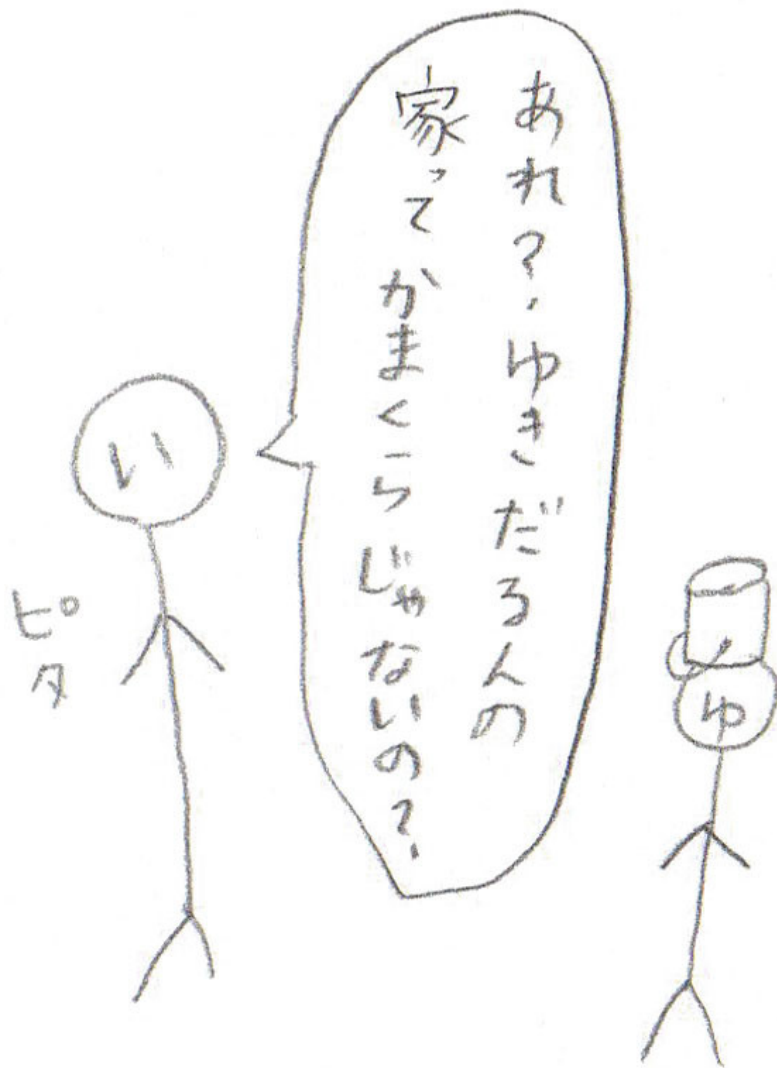 あれ?ゆきだるんの
家ってかまくらじゃないの?
ゆ
い
ピタ